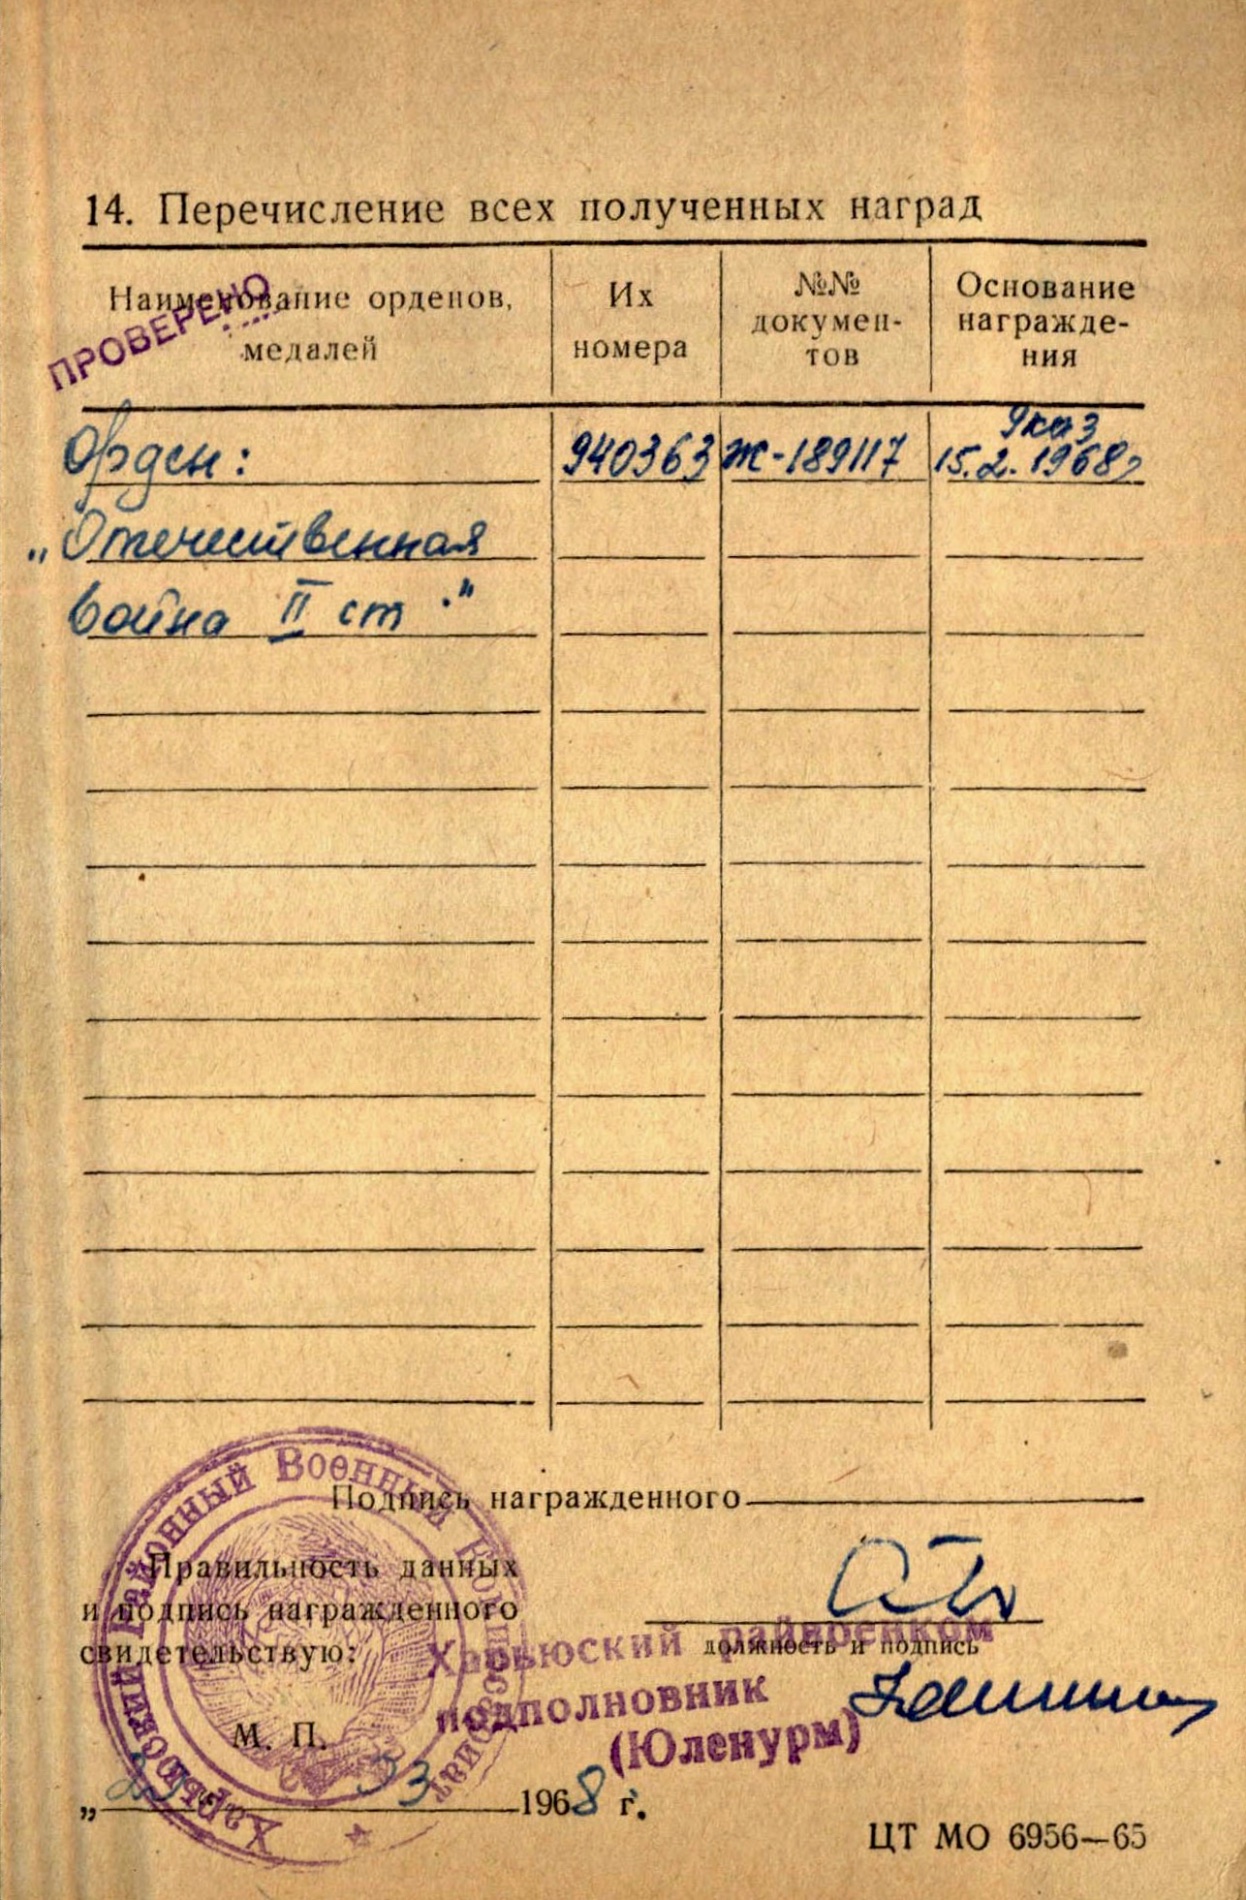 14. Перечисление всех полученных наград
Наименование орденов,
медалей
Их
номера
№№
докумен-
тов
Основание
награжде-
ния
ПРОВЕРЕНО
Орден:
940363
Ж-189117
Указ
15.2.1968г
„Отечественная
война II ст."
Подпись награжденного
Правильность данных
и подпись награжденного
свидетельствую:
должность и подпись
Харьюский райвоенком
подполновник
(Юленурм)
М. П.
Харьюский Районный Военный Комиссариат
„ 03 1968 г.
ЦТ МО 6956—65